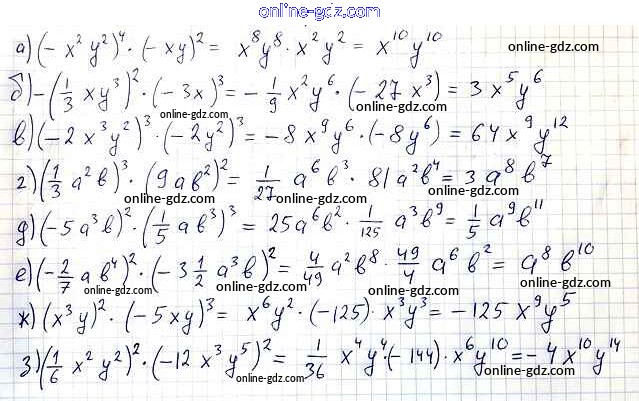 online-gdz.com
а) (- x² y²)⁴ · (- xy)² = x⁸y⁸ · x² y² = x¹⁰ y¹⁰ online-gdz.com
б) - (1/3 xy³)² · (- 3x)³ = - 1/9 x² y⁶ · (- 27 x³) = 3 x⁵ y⁶
online-gdz.com online-gdz.com
в) (-2 x³y²)³ · (-2y²)³ = -8 x⁹y⁶ · (-8y⁶) = 64 x⁹ y¹²
online-gdz.com online-gdz.com
г) (1/3 a² b)³ · (9 a b²)² = 1/27 a⁶ b³ · 81 a² b⁴ = 3 a⁸ b⁷
online-gdz.com online-gdz.com online-gdz.com
д) (-5 a³ b)² · (1/5 a b³)³ = 25a⁶ b² · 1/125 a³ b⁹ = 1/5 a⁹ b¹¹
online-gdz.com online-gdz.com
е) (-2/7 a b⁴)² · (-3 1/2 a³ b)² = 4/49 a² b⁸ · 49/4 a⁶ b² = a⁸ b¹⁰
online-gdz.com online-gdz.com online-gdz.com
ж) (x³ y)² · (-5xy)³ = x⁶ y² · (-125) · x³y³ = -125 x⁹ y⁵
online-gdz.com
з) (1/6 x² y²)² · (-12 x³ y⁵)² = 1/36 x⁴ y⁴ · (- 144) · x⁶ y¹⁰ = - 4 x¹⁰ y¹⁴
online-gdz.com online-gdz.com
online-gdz.com